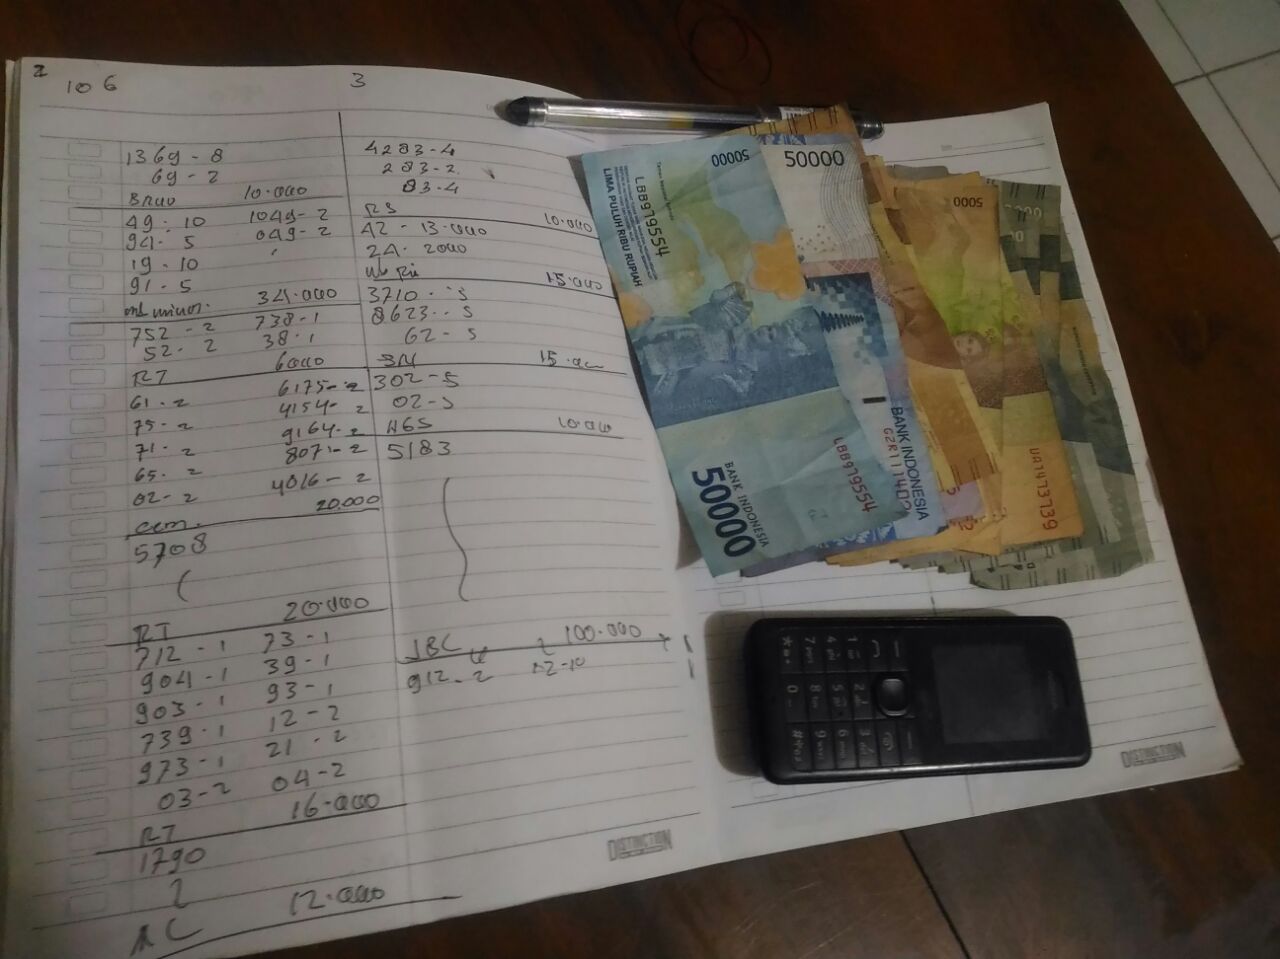 10 6
3
1369-8
69-2
10.000
49-10 1049-2
94-5 049-2
19-10
91-5
34.000
752-2 738-1
52-2 38-1
RT 6000
61-2 6175-2
75-2 4154-2
71-2 9164-2
65-2 8071-2
02-2 4016-2
20.000
5708
RT 20.000
712-1 73-1
904-1 39-1
903-1 93-1
739-1 12-2
973-1 21-2
03-2 04-2
RT 16.000
1790
12.000
4283-4
283-2
83-4
RS 10.000
42-13.000
24-2000
15.000
3710-5
8623-5
62-5
302-5
02-5
10.000
5183
JBC 100.000
912-2 12-10
DISTINCTION
50000
50000
LBB979554
LIMA PULUH RIBU RUPIAH
LBB979554
BANK INDONESIA
50000
BANK INDONESIA
5000
DISTINCTION